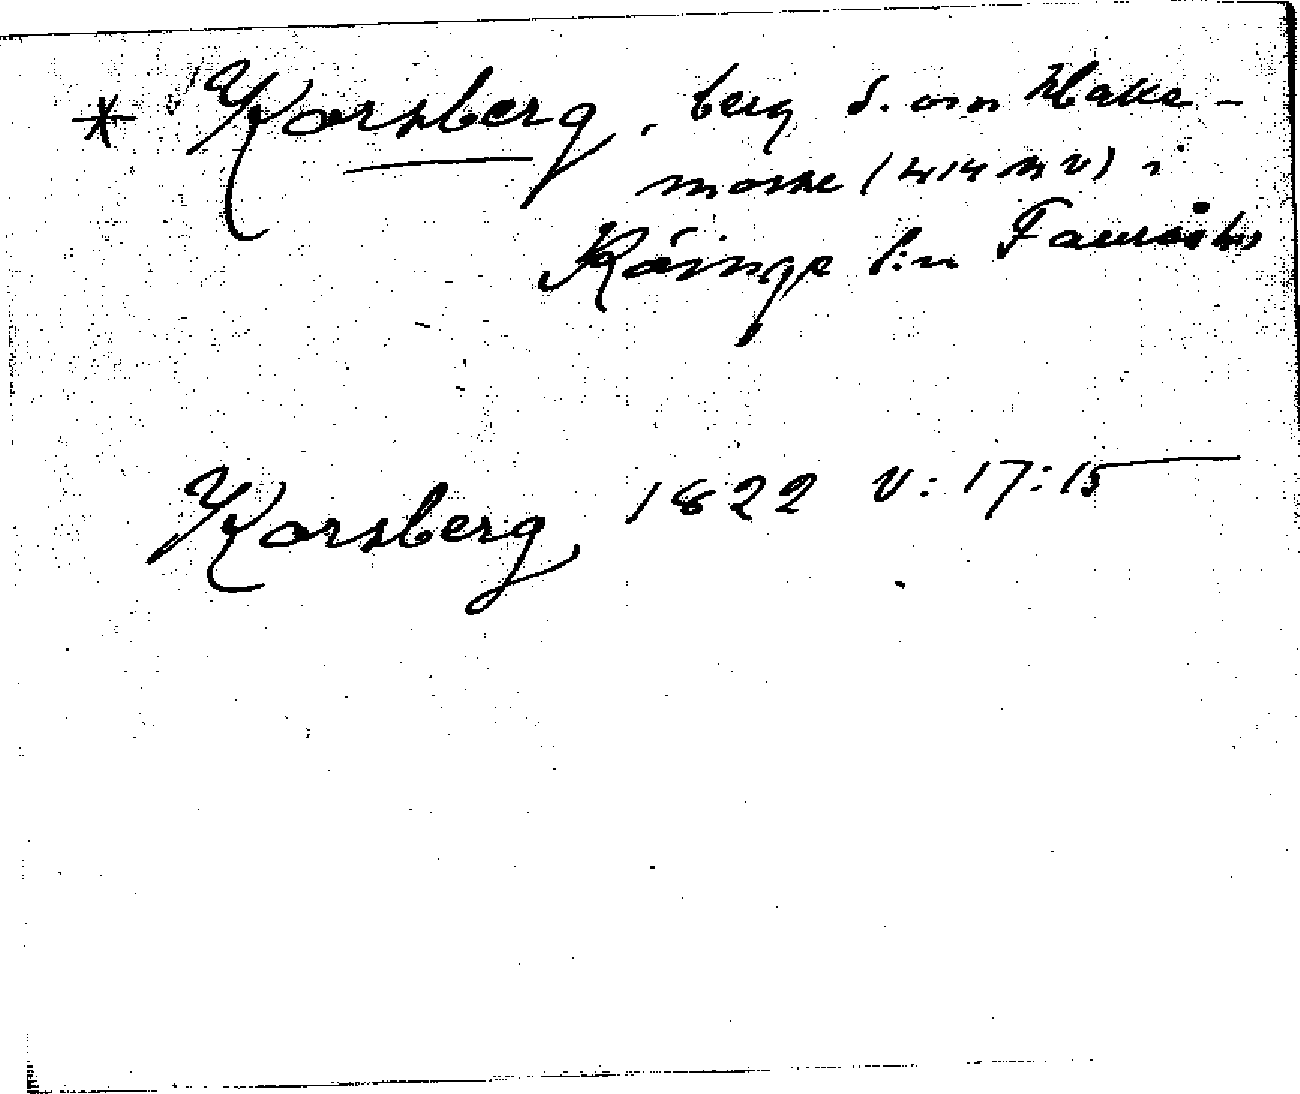 * Korsberg, berg S. om Hake-
mosse (414 m v) i
Käinge l:n
Korsberg 1822 V: 17:15